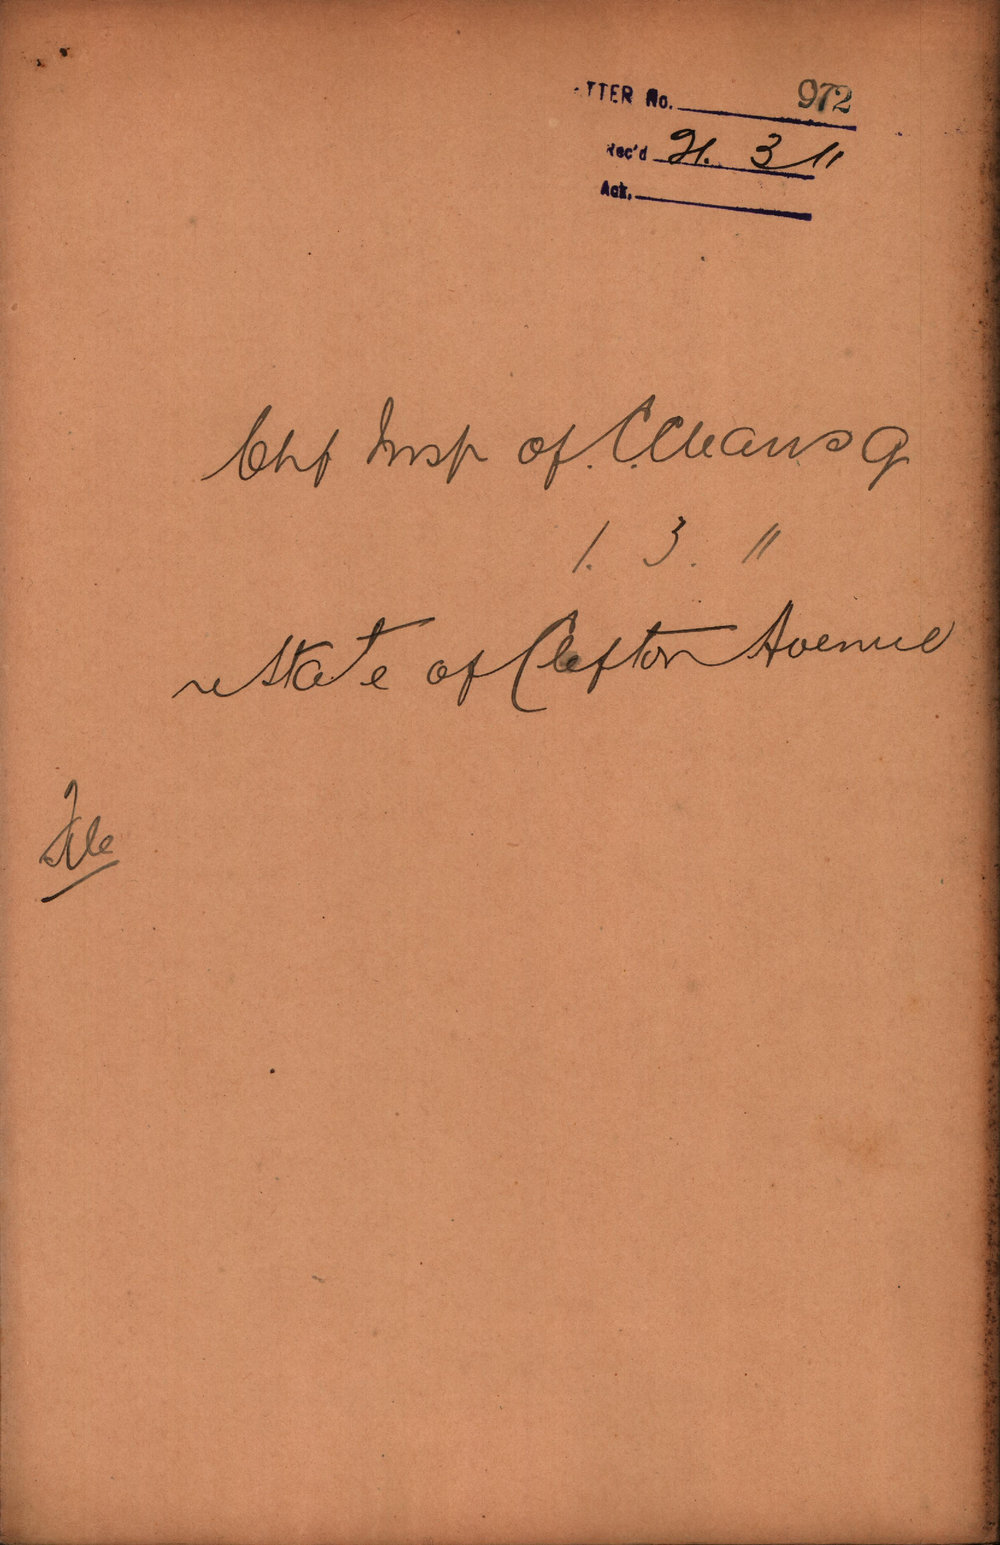 TTER No. 972
Rec'd 21. 3 11
Ack.
Chf Insp of C. Cleansg
1. 3. 11
re State of Clifton Avenue
File